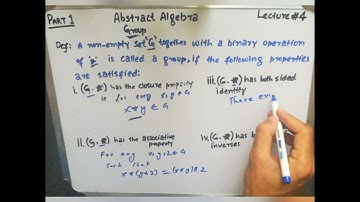 PART 1
Abstract Algebra
Lecture #4
Group
Def: A non-empty set 'G' together with a binary operation
of '*' is called a group, if the following properties
are satisfied:
i. (G, *) has the closure property
ie for every x, y ∈ G
x*y ∈ G
ii. (G, *) has the associative
property
For any x, y, z ∈ G
Such that
x*(y*z) = (x*y)*z
iii. (G, *) has both sided
identity
There exi
iv. (G, *) has b
inverses